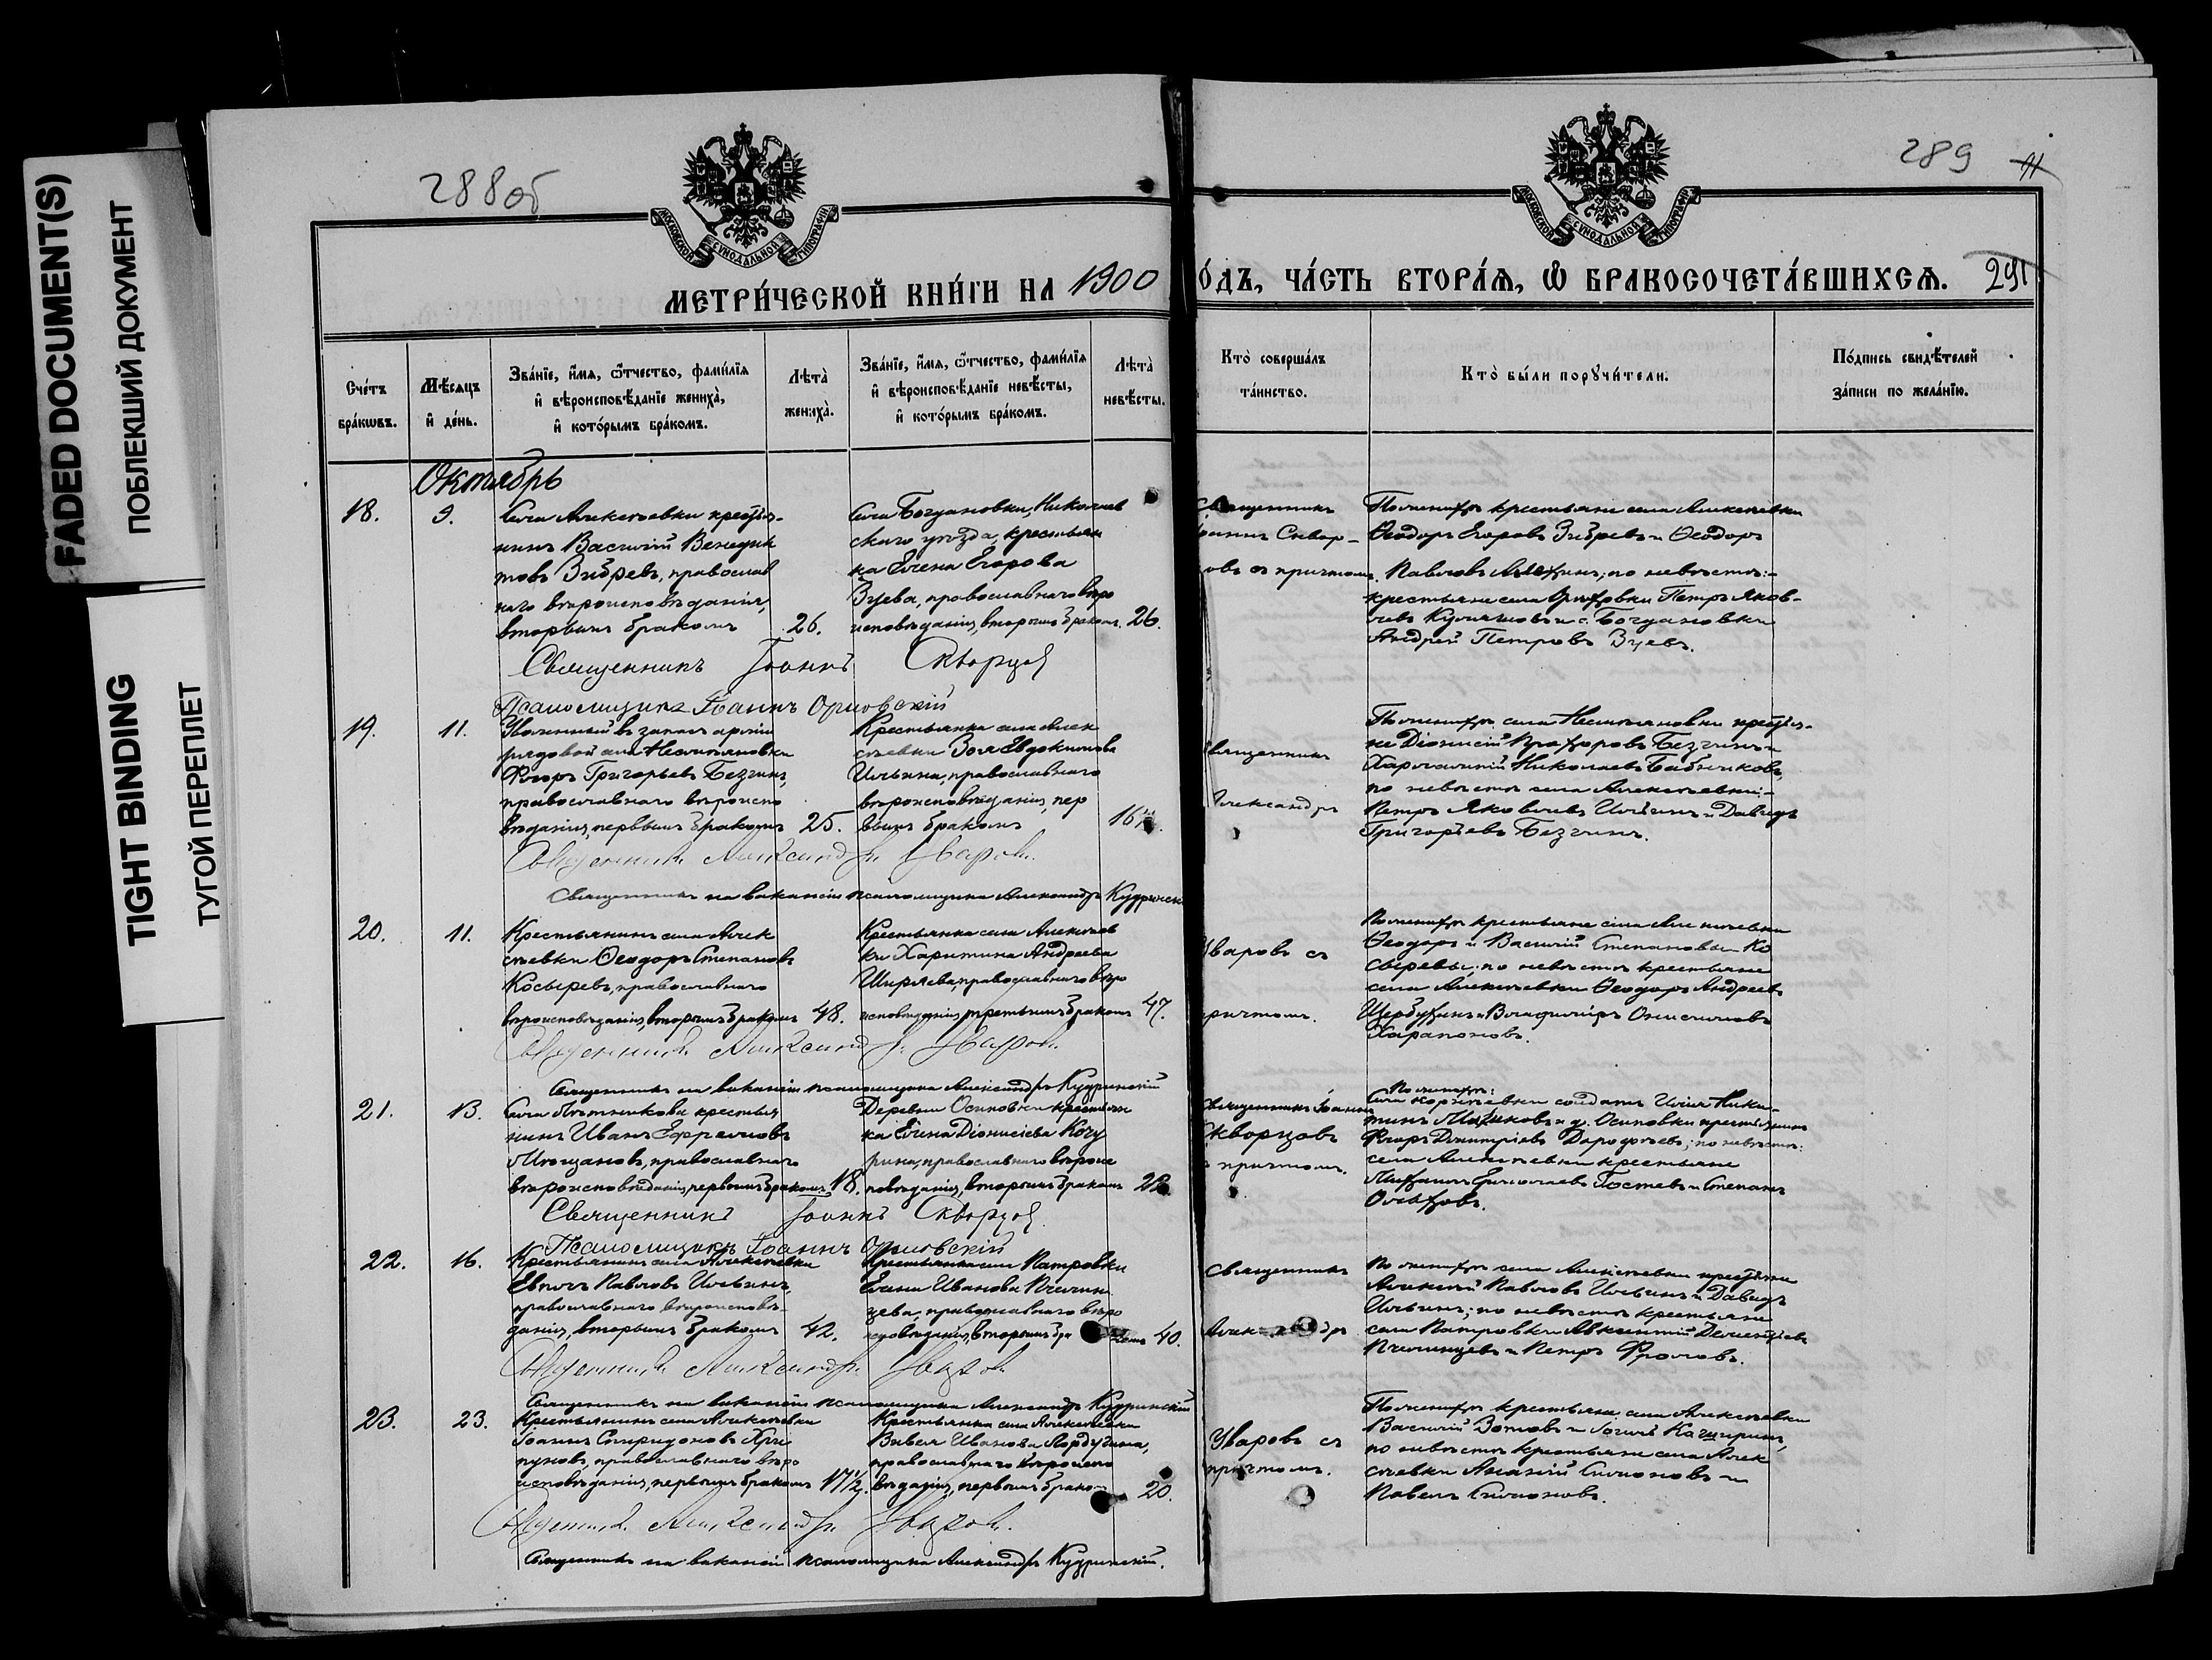 FADED DOCUMENT(S)
ПОБЛЕКШИЙ ДОКУМЕНТ
TIGHT BINDING
ТУГОЙ ПЕРЕПЛЕТ
288об
289
291
МОСКОВСКОЙ СѴНОДАЛЬНОЙ ТИПОГРАФІИ
МОСКОВСКОЙ СѴНОДАЛЬНОЙ ТИПОГРАФІИ
МЕТРИ́ЧЕСКОЙ КНИ́ГИ НА 1900
О́ДЪ, ЧА́СТЬ ВТОРА́Ѧ, Ѡ БРАКОСОЧЕТА́ВШИХСѦ.
Сче́тъ бра́кѡвъ.
Мѣ́сяцъ и҆ де́нь.
Зва́нїе, и҆́мя, ѻ҆́тчество, фами́лїя и҆ вѣроисповѣ́данїе жениха̀, и҆ кото́рымъ бра́комъ.
Лѣта̀ жениха̀.
Зва́нїе, и҆́мя, ѻ҆́тчество, фами́лїя и҆ вѣроисповѣ́данїе невѣ́сты, и҆ кото́рымъ бра́комъ.
Лѣта̀ невѣ́сты.
Кто̀ соверша́лъ та́инство.
Кто̀ бы́ли порꙋчи́тели.
По́дпись свидѣ́телей за́писи по жела́нїю.
Октябрь
18.
9.
Села Алексѣевки крестья-
нинъ Василій Венедик
товъ Зибревъ, православ
наго вѣроисповѣданія,
вторымъ бракомъ
26.
Села Богдановки, Николаев
скаго уѣзда, крестьян
ка Елена Егорова
Зуева, православнаго вѣро
исповѣданія, вторымъ бракомъ.
26.
Священникъ
Сквор-
овъ съ причтомъ.
По женихѣ крестьяне села Алексѣевки
Ѳеодоръ Егоровъ Зибревъ и Ѳеодоръ
Павловъ; по невѣстѣ:-
крестьяне села Петръ Яков-
левъ и с. Богдановки
Андрей Петровъ Зуевъ.
Священникъ Іоаннъ Скворцовъ
Псаломщикъ Іоаннъ Орловскій
19.
11.
Уволенный въ запасъ арміи
рядовой села
Ѳеодоръ Григорьевъ Безгинъ,
православнаго вѣроиспо
вѣданія, первымъ бракомъ
25.
Крестьянка села Алек
сѣевки Зоя Евдокимова
Ильина, православнаго
вѣроисповѣданія, пер
вымъ бракомъ
16½.
Священникъ
Александръ
По женихѣ села крестья-
не Діонисій Безгинъ и
Харлампій Николаевъ
по невѣстѣ села Алексѣевки:-
Петръ Яковлевъ Ильинъ и Давидъ
Григорьевъ Безгинъ.
Священникъ Александръ Уваровъ.
Священникъ на вакансіи псаломщика Александръ Кудринскій
20.
11.
Крестьянинъ села Алек
сѣевки Ѳеодоръ Степановъ
Косыревъ, православнаго
вѣроисповѣданія, вторымъ бракомъ
48.
Крестьянка села Алексѣев
ки Харитина Андреева
Ширяева, православнаго вѣро
исповѣданія, третьимъ бракомъ
47.
Уваровъ съ
причтомъ.
По женихѣ крестьяне села Алексѣевки
Ѳеодоръ и Василій Степановы Ко
сыревы; по невѣстѣ крестьяне
села Алексѣевки Ѳеодоръ Андреевъ
и Владиміръ Онисимовъ
Харапоновъ.
Священникъ Александръ Уваровъ.
Священникъ на вакансіи псаломщика Александръ Кудринскій
21.
13.
Села крестья
нинъ Иванъ Ефремовъ
православнаго
вѣроисповѣданія, первымъ бракомъ
18.
Деревни Осиповки крестьян
ка Елена Діонисіева Кочу
рина, православнаго вѣроис
повѣданія, вторымъ бракомъ
Священникъ Іоаннъ
Скворцовъ
съ причтомъ.
По женихѣ:
Села солдатъ Илья Ники-
тинъ и д. Осиповки крестьянинъ
Ѳеодоръ Димитріевъ Дорофеевъ; по невѣстѣ:
села Алексѣевки крестьяне
Гостевъ и Степанъ
Священникъ Іоаннъ Скворцовъ
Псаломщикъ Іоаннъ Орловскій
22.
16.
Крестьянинъ села Алексѣевки
Евполъ Павловъ Ильинъ,
православнаго вѣроисповѣ-
данія, вторымъ бракомъ
42.
Крестьянка села Патровки
Елена Иванова Пчелин
цева, православнаго вѣро
исповѣданія, вторымъ бра комъ
40.
Священникъ
Александръ
По женихѣ села Алексѣевки крестьяне
Алексѣй Павловъ Ильинъ и Давидъ
Ильинъ; по невѣстѣ крестьяне
села Патровки Авксентій Дементіевъ
Пчелинцевъ и Петръ Фроловъ.
Священникъ Александръ Уваровъ.
Священникъ на вакансіи псаломщика Александръ Кудринскій
23.
23.
Крестьянинъ села Алексѣевки
Іоаннъ Спиридоновъ Хри
пуновъ, православнаго вѣро
исповѣданія, первымъ бракомъ
17½.
Крестьянка села Алексѣевки
Вивея Иванова Лардугина,
православнаго вѣроиспо
вѣданія, первымъ бракомъ
20.
Уваровъ съ
причтомъ.
По женихѣ крестьяне села Алексѣевки
Василій Зотовъ и
по невѣстѣ крестьяне села Алек
сѣевки Ананій Симоновъ и
Павелъ Симоновъ.
Священникъ Александръ Уваровъ.
Священникъ на вакансіи псаломщика Александръ Кудринскій.